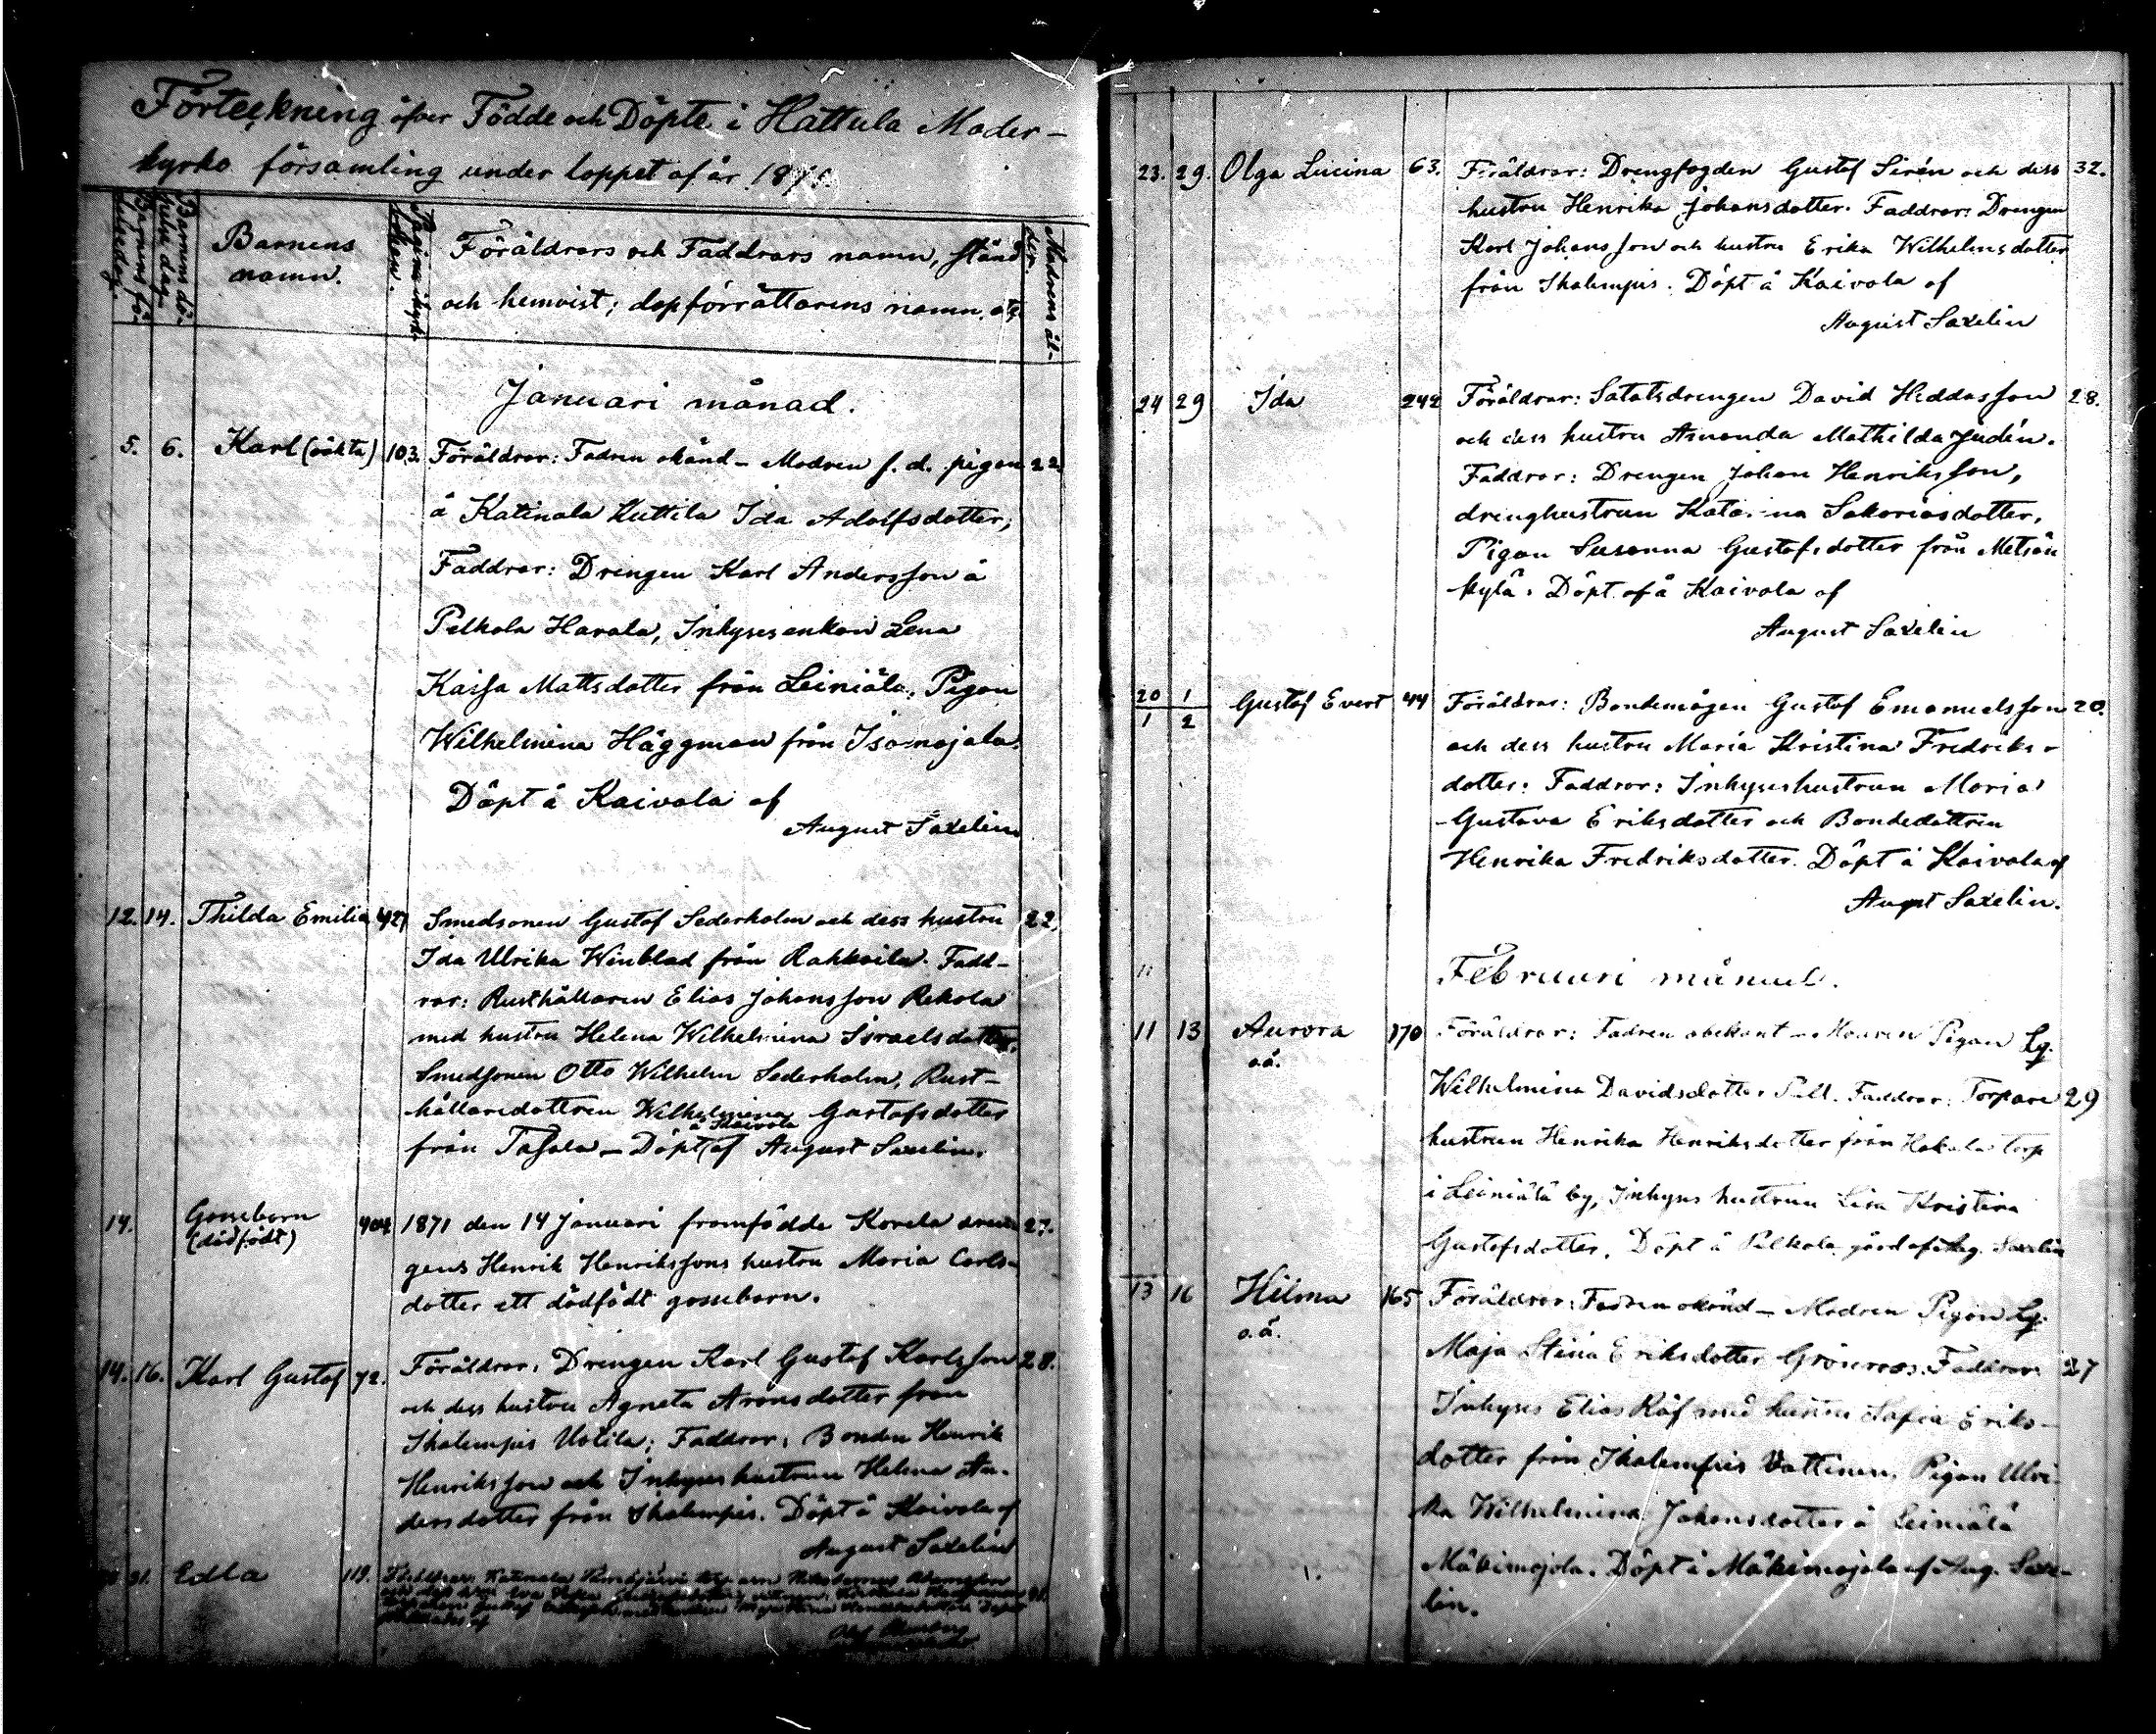 Förteckning öfver Födde och Döpte i Hattula Moder-
kyrko församling under loppet af år 187
Barnens fö-
delsedag.
Barnens dö-
pelse dag.
Barnens
namn.
Pagina i kyrko
boken.
Föräldrars och Faddrars namn, stånd
och hemvist; dopförrättarens namn. etc
Modrens ål-
der.
Januari månad.
5. 6. Karl (oäkta) 103. Föräldrar: Fadren okänd - Modren f. d. pigan 22
å Katinala Kuttila Ida Adolfsdotter;
Faddrar: Drengen Karl Andersson å
Pelkola Harala, Inhysesenkan Lena
Kaisa Mattsdotter från Leiniälä, Pigan
Wilhelmina Häggman från Isomojala.
Döpt å Kaivola af
August Saxelin
12. 14. Thilda Emilia 427 Smedsonen Gustaf Sederholm och dess hustru 22.
Ida Ulrika Winblad från Rahkoila. Fadd-
rar: Rusthållaren Elias Johansson Rekola
med hustru Helena Wilhelmina Israelsdotter,
Smedsonen Otto Wilhelm Sederholm, Rust-
hållaredottren Wilhelmina Gustafsdotter
å Kaivola
från Tasala - Döpt af August Saxelin.
14. Gossebarn 404 1871 den 14 Januari framfödde Korela dren 27.
(dödfödt)
gens Henrik Henrikssons hustru Maria Carls-
dotter ett dödfödt gossebarn.
14. 16. Karl Gustaf 72. Föräldrar: Drengen Karl Gustaf Karlsson 28.
och dess hustru Agneta Aronsdotter från
Ihalempis Uotila; Faddrar: Bonden Henrik
Henriksson och Inhyseshustrun Helena An-
dersdotter från Ihalempis. Döpt å Kaivola af
August Saxelin
Edla 119.
23. 29. Olga Lucina 63. Föräldrar: Drengfogden Gustaf Sirén och dess 32.
hustru Henrika Johansdotter. Faddrar: Drengen
Karl Johansson och hustru Erika Wilhelmsdotter
från Ihalempis. Döpt å Kaivola af
August Saxelin
24 29 Ida 242 Föräldrar: Statsdrengen David Heddasson 28.
och dess hustru Amanda Mathilda Judén.
Faddrar: Drengen Johan Henriksson,
drenghustrun Katarina Sakariasdotter,
Pigan Susanna Gustafsdotter från Metsän
kylä. Döpt af å Kaivola af
August Saxelin
20 1 Gustaf Evert 44 Föräldrar: Bondemågen Gustaf Emanuelsson 20.
1 2 och dess hustru Maria Kristina Fredriks-
dotter: Faddrar: Inhyseshustrun Maria
Gustava Eriksdotter och Bondedottren
Henrika Fredriksdotter. Döpt å Kaivola af
August Saxelin.
Februari månad.
11 13 Aurora 170 Föräldrar: Fadren obekant - Modren Pigan Lg.
o.ä.
Wilhelmina Davidsdotter Faddrar: Torpare 29
hustrun Henrika Henriksdotter från Hakala torp
i Leiniälä by, Inhyses hustrun Lisa Kristina
Gustafsdotter. Döpt å Pelkola gård af Aug. Saxelin
13 16 Hilma 165 Föräldrar: Fadren okänd - Modren Pigan Lg.
o.ä.
Maja Stina Eriksdotter Grönroos. Faddrar: 27
Inhyses Elias Räf med hustru Sofia Eriks-
dotter från Ihalempis Vattinen, Pigan Ulri-
ka Wilhelmina Johansdotter å Leiniälä
Mäkimojola. Döpt i Mäkimojola af Aug. Saxe-
lin.